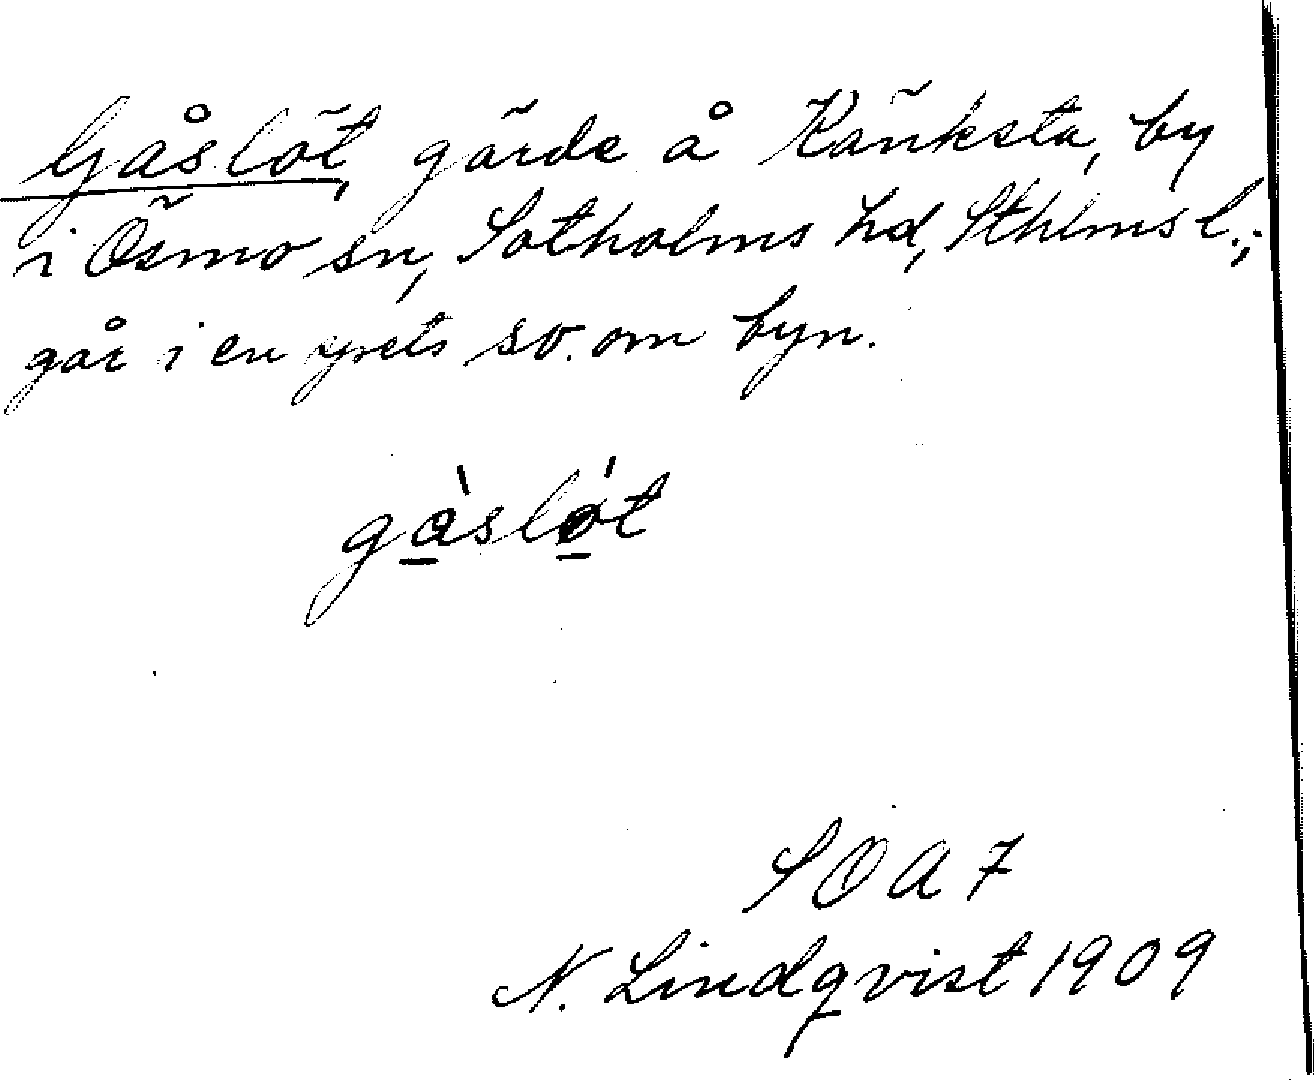 Gåslöt, gärde å Känksta, by
i Ösmo sn, Sotholms hd, Sthlms l.;
går i en spets sv. om byn.
gàslót
SOA 7
N. Lindqvist 1909